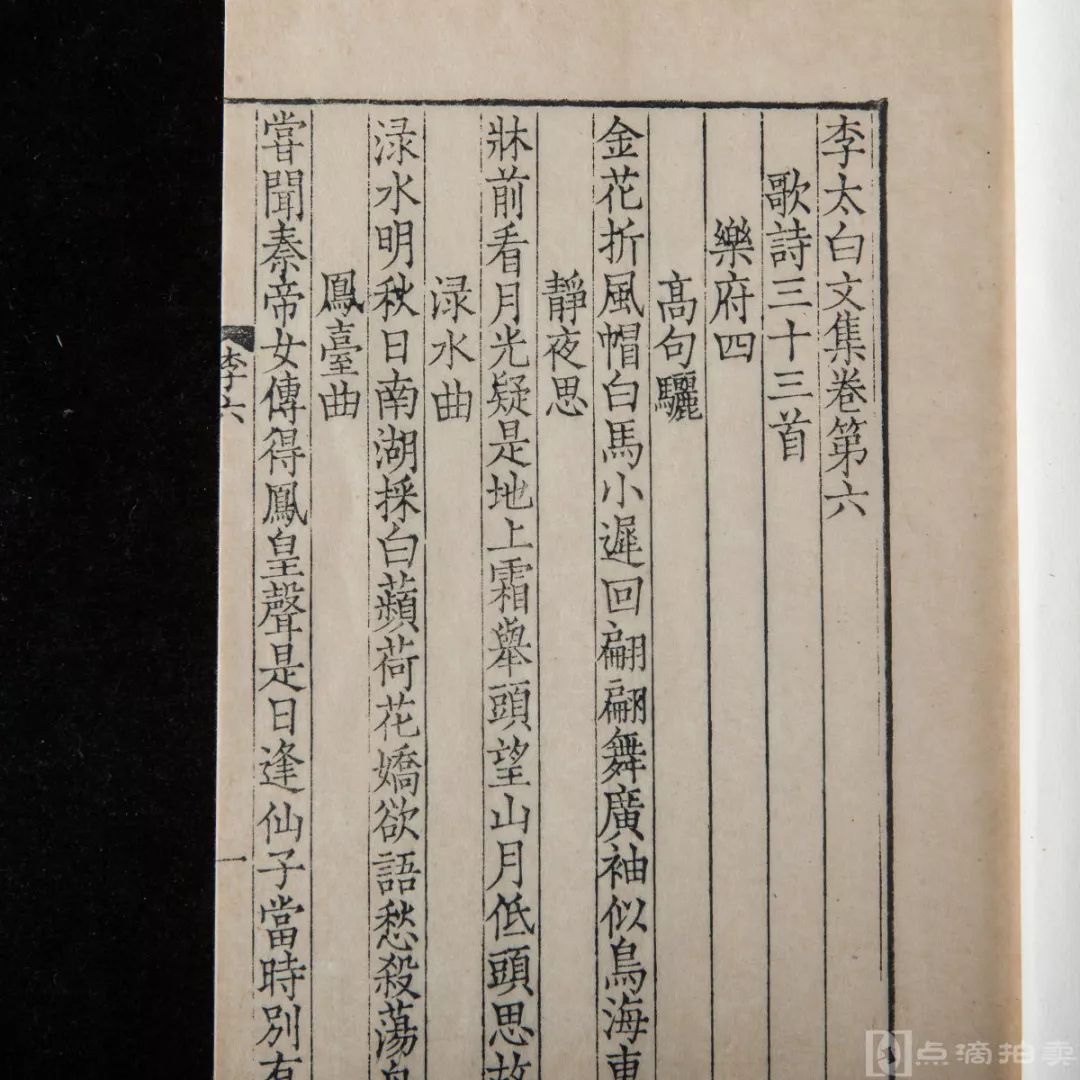 李太白文集卷第六
歌詩三十三首
樂府四
高句驪
金花折風帽白馬小遲回翩翩舞廣袖似鳥海東
靜夜思
牀前看月光疑是地上霜舉頭望山月低頭思故
淥水曲
淥水明秋日南湖採白蘋荷花嬌欲語愁殺蕩舟
鳳臺曲
嘗聞秦帝女傳得鳳皇聲是日逢仙子當時別有
李六
一
点滴拍卖